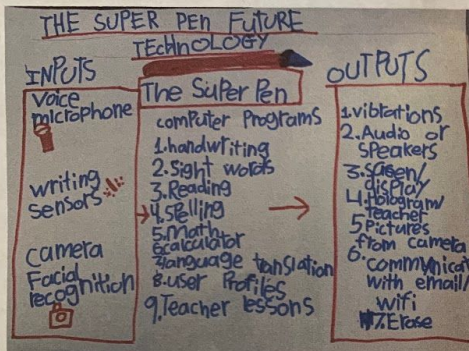 THE SUPER PEN FUTURE
TECHNOLOGY
INPUTS
Voice
microphone
writing
sensors
camera
Facial
recognition
The Super Pen
computer Programs
1.handwriting
2.Sight words
3.Reading
4.spelling
5.math
6calculator
7language translation
8.user Profiles
9.Teacher lessons
OUTPUTS
1.vibrations
2.Audio or
speakers
3.screen/
display
4.Hologram/
teacher
5Pictures
from camera
6.communicat
with email/
wifi
7.Erase